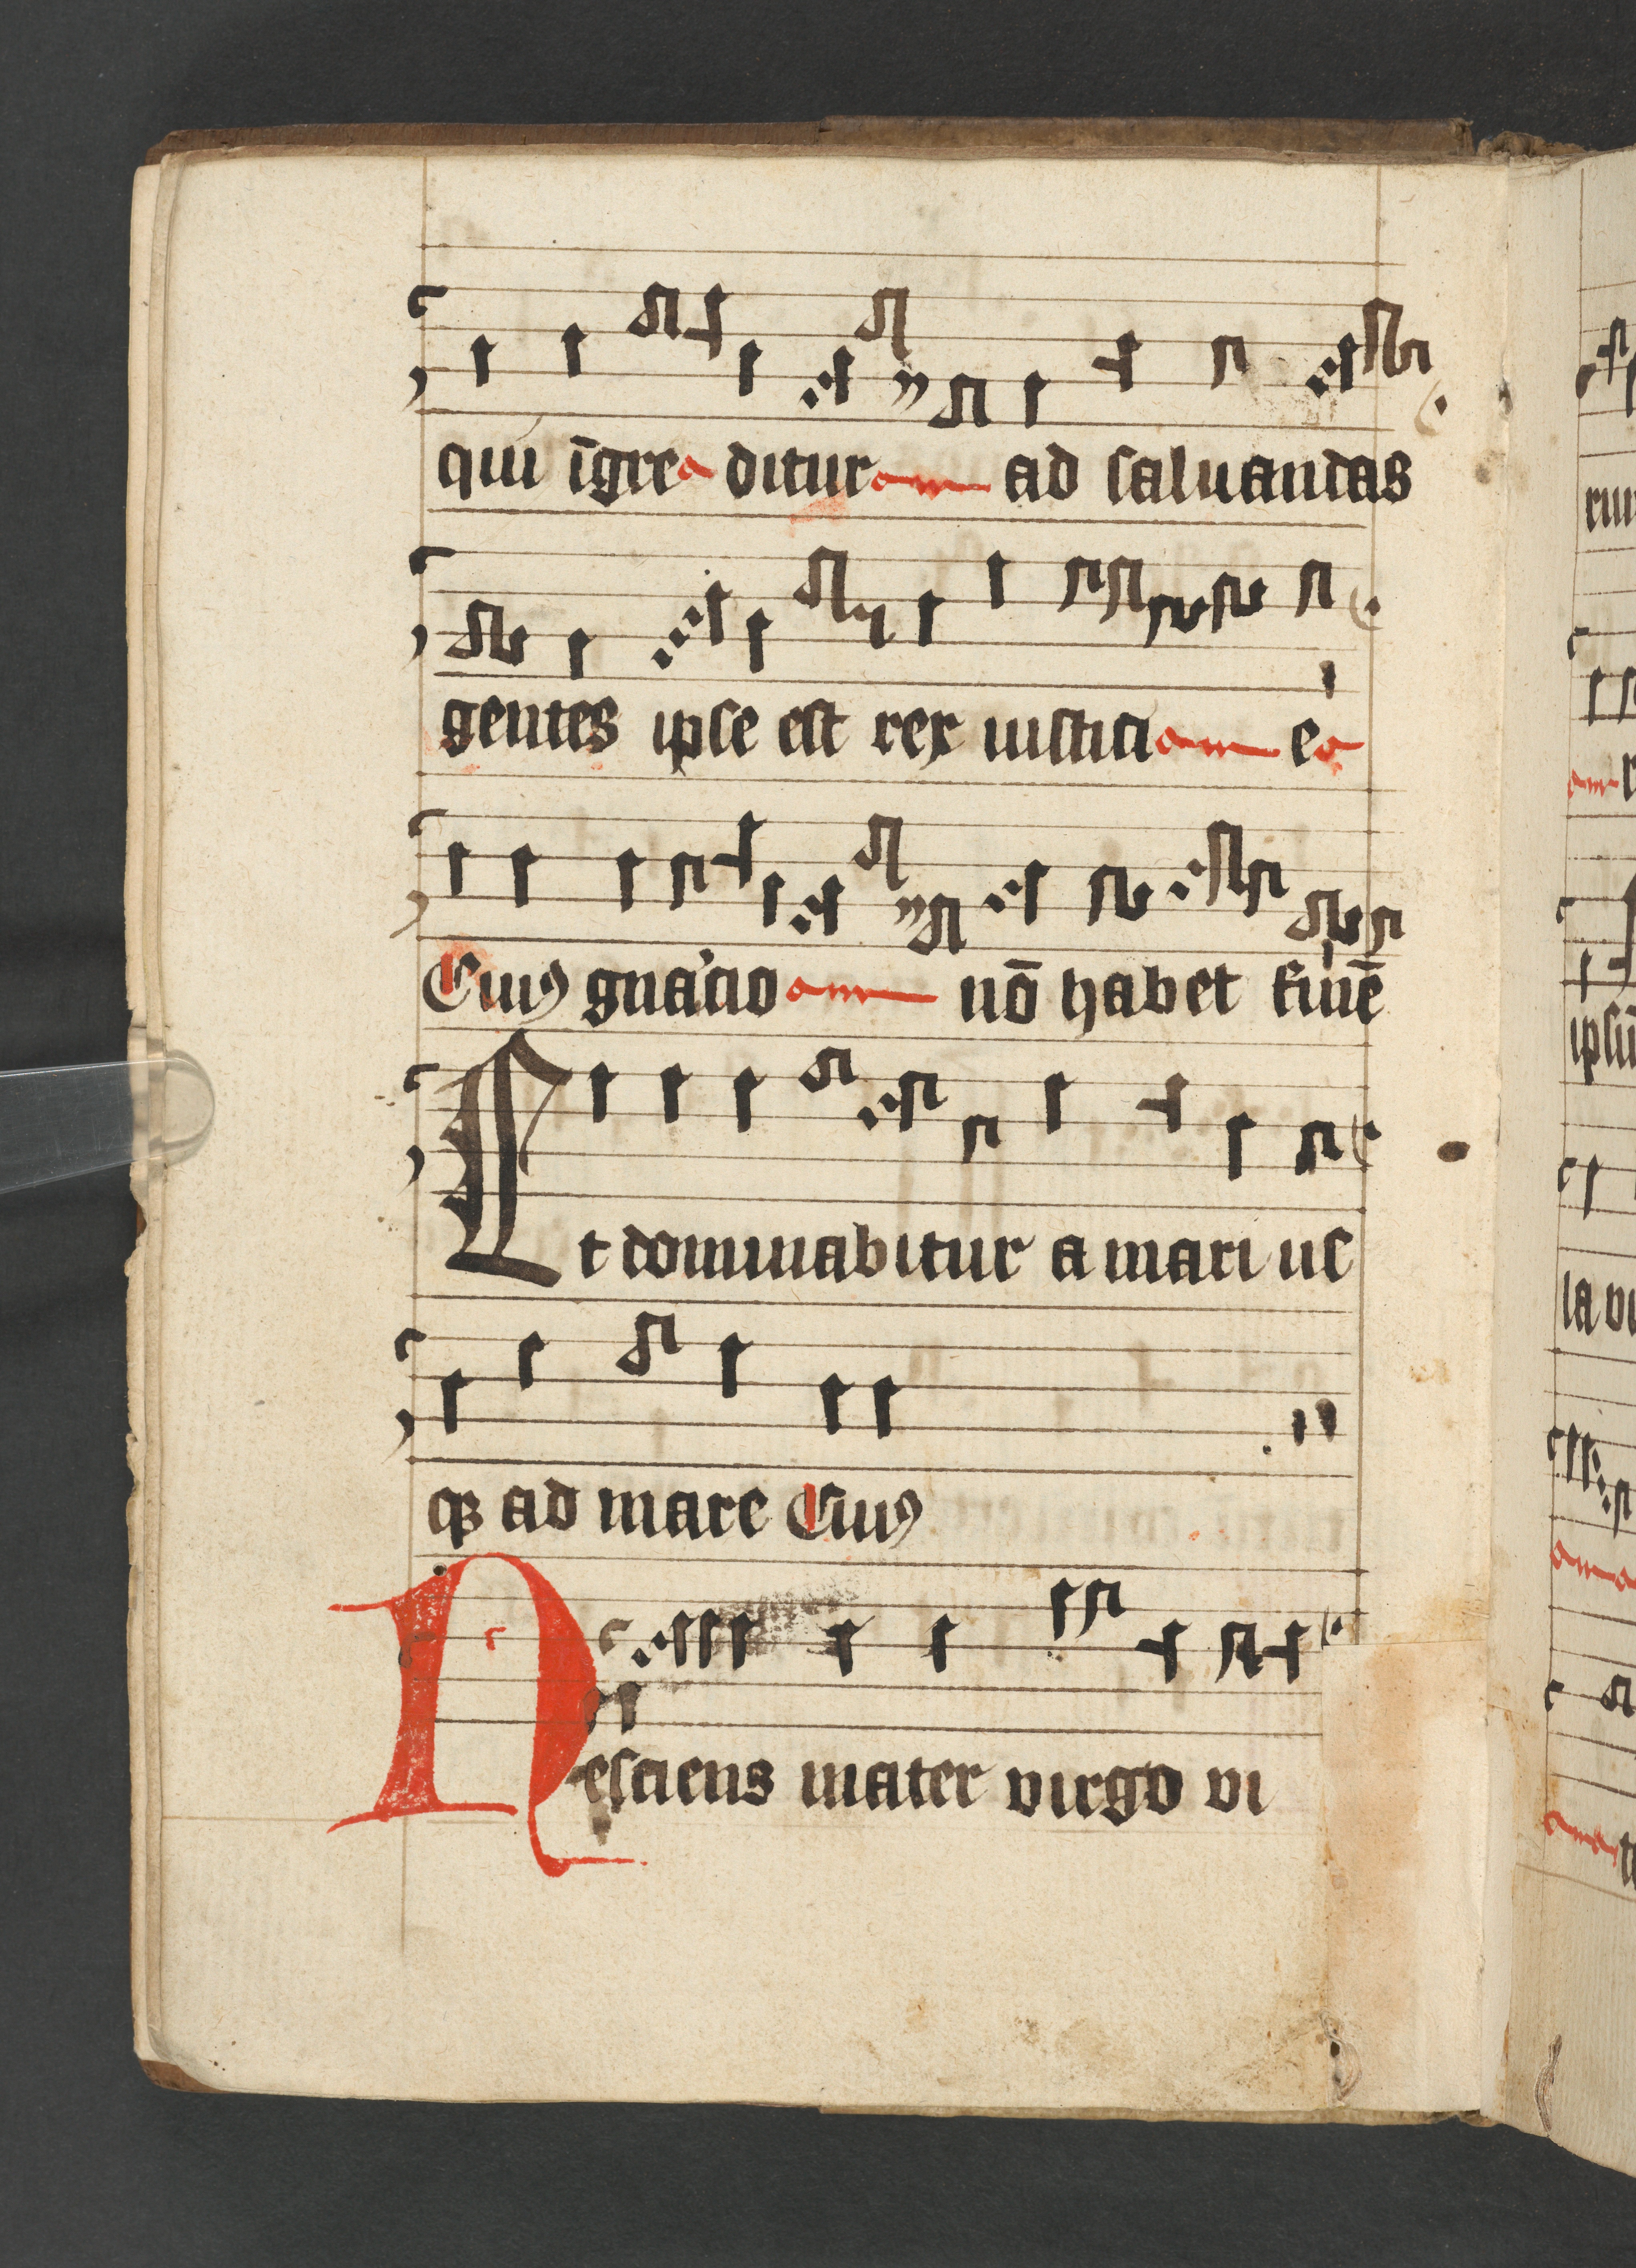 qui īgre ditur ad saluandas
gentes ipse est rex iustici e
Cuiꝰ gnac̄io nō habet finē
Et dominabitur a mari us
qꝫ ad mare Cuiꝰ
Nesciens mater virgo vi